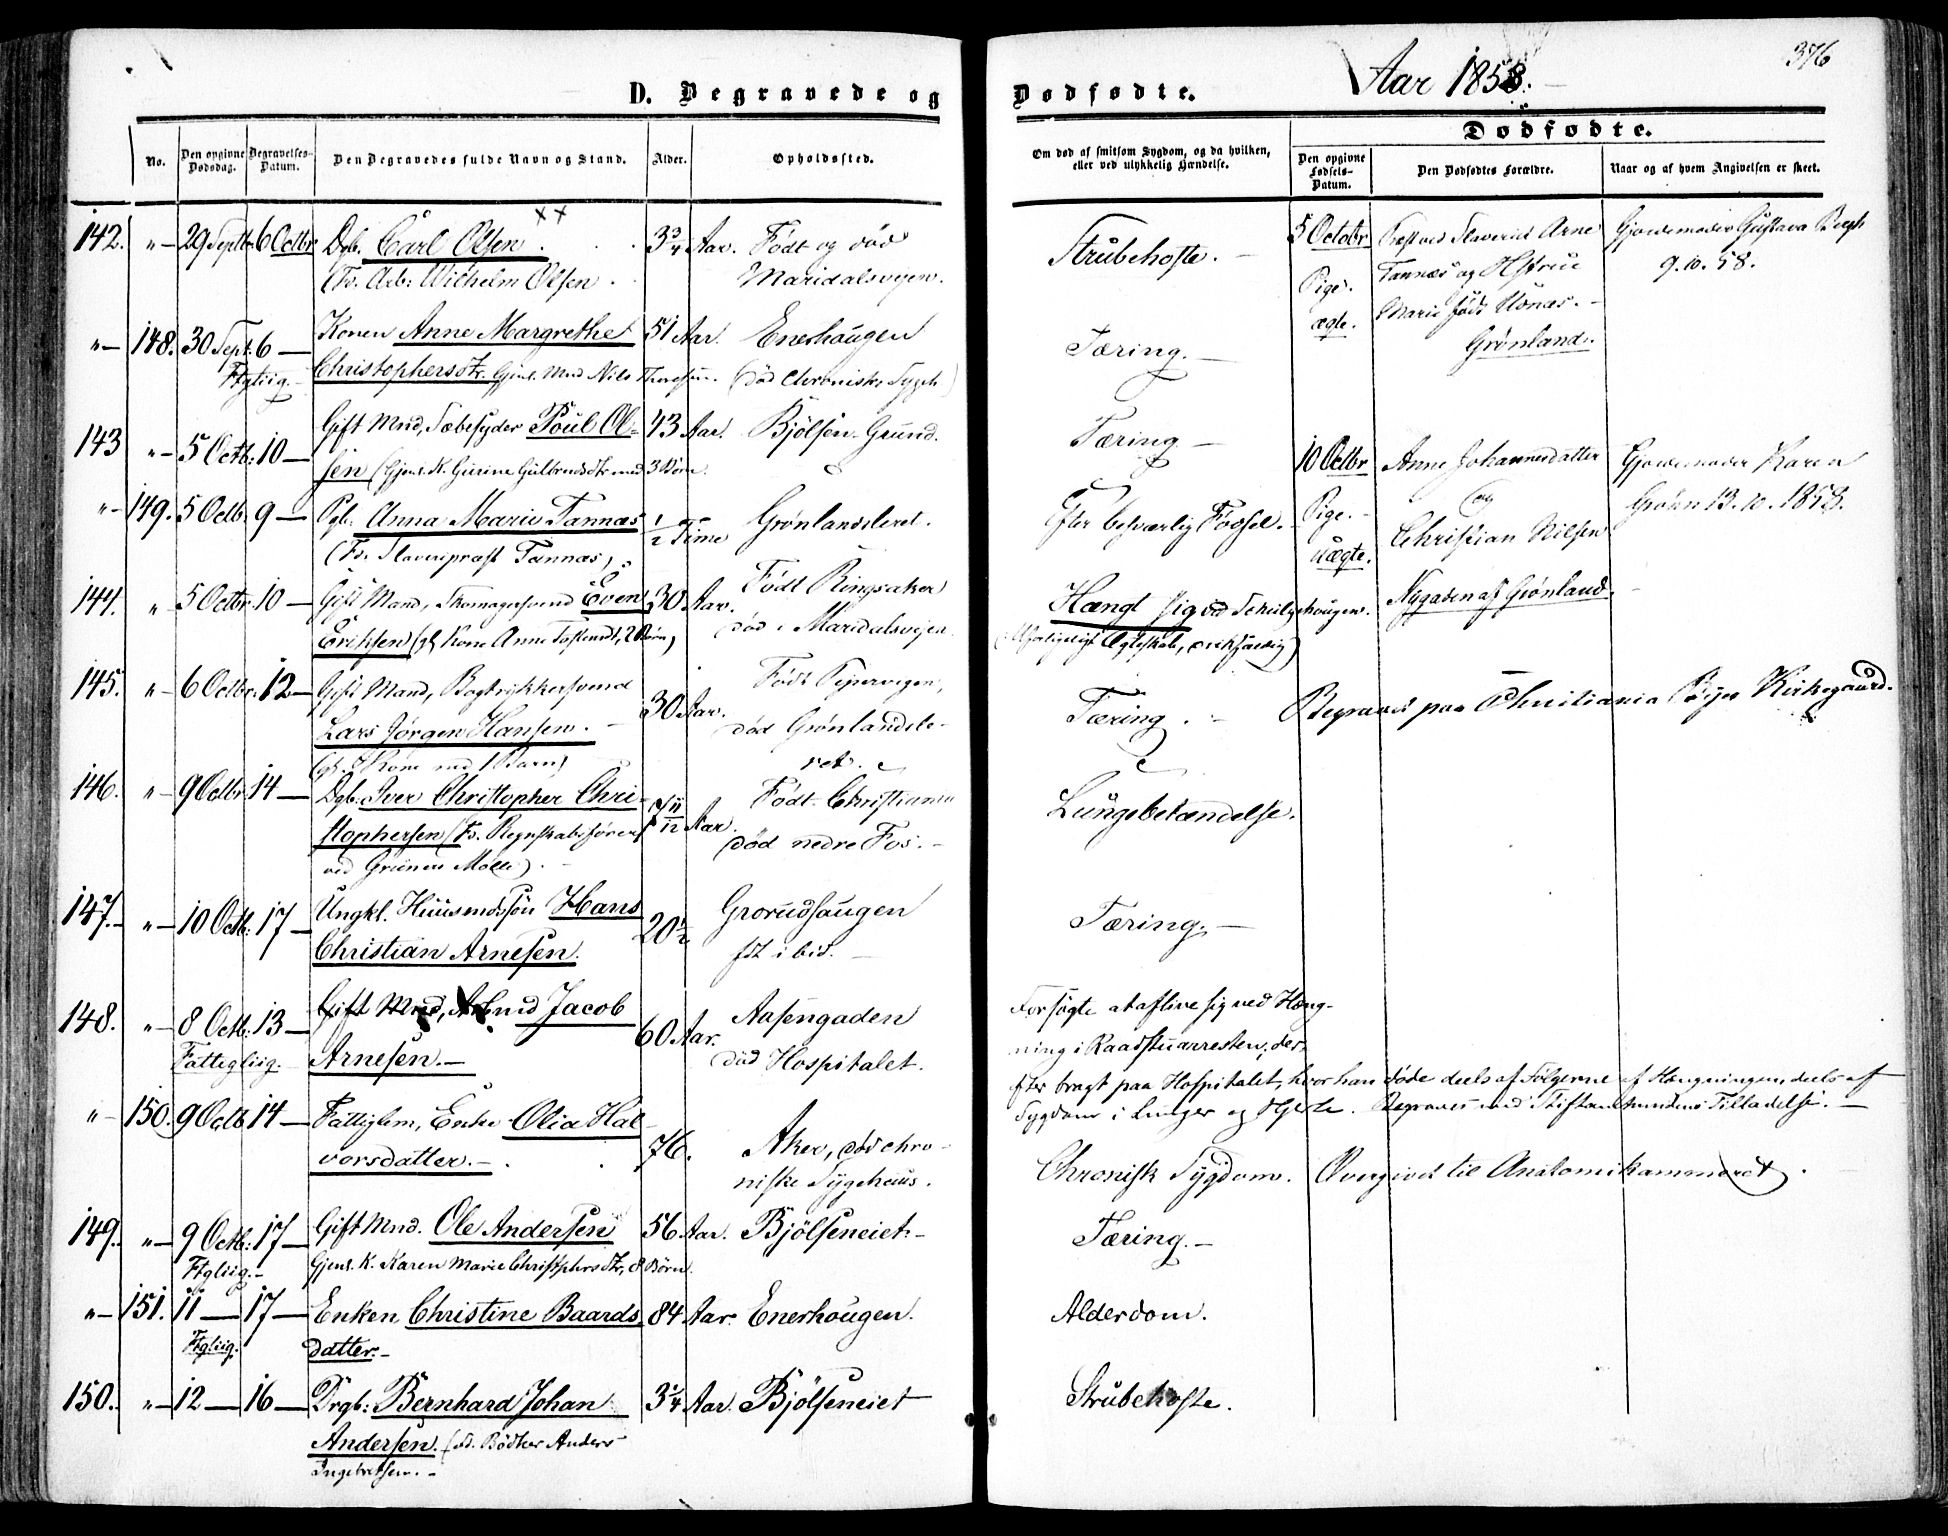 D. Begravede og Dødfødte. Aar 1858. 376
No. Den opgivne Dødsdag. Begravelses-Datum. Den Begravedes fulde Navn og Stand. Alder. Opholdssted.
Om død af smitsom Sygdom, og da hvilken, eller ved ulykkelig Hændelse.
Dødfødte.
Den opgivne Fødsels-Datum. Den Dødfødtes Forældre. Naar og af hvem Angivelsen er skeet.
142. " 29 Septbr 6 Octbr Dgb. Carl Olsen. ×× 3 3/4 Aar. Født og død
(Fr. Arb: Wilhelm Olsen. Maridalsveien.
Strubehoste.
" 148. 30 Sept. 6 — Konen Anne Margrethe 51 Aar. Enerhaugen
Ftgliig. Christophersdtr. Gjenl. Mnd Nils Thoresen. (død Chroniske Sygeh)
Tæring.
143 " 5 Octb: 10 — Gift Mnd, Sæbesyder Poul Ol- 43 Aar. Bjølsen Grund.
sen (Gjenl. K. Gurine Gulbrndsdtr med 3 Børn.
Tæring
" 149. 5 Octb. 9 — Pgb. Anna Marie Tannæs 1/2 Time Grønlandsleret.
(Fr. Slaveripræst Tannæs)
Efter besværlig Fødsel.
144. " 5 Octbr. 10 — Gift Mand, Skomagersvend Even 30 Aar. Født Ringsaker
Eriksen (gl Kone Anne Tostensdt, 2 Børn) død i Maridalsveien.
Hængt sig ved Schulzehougen.
(Ulykkeligt Ægteskab, )
145. " 6 Octbr. 12 — Gift Mand, Bogtrykkersvend 30 Aar. Født Pipervigen,
Lars Jørgen Hansen. død Grønlandsle-
(gl. Kone med 1 Barn) ret.
Tæring. Begravet paa Christiania Byes Kirkegaard.
146. " 9 Octbr 14 — Dgb. Iver Christopher Chri- 7 11/12 Aar. Født Christiania
stophersen (Fr. Regnskabsfører død nedre Fos.
ved Grüners Mølle).
Lungebetændelse.
147. " 10 Octb: 17 — Ungkl. Huusmdssøn Hans 20 1/2 Grorudhaugen
Christian Arnesen. fdt ibid.
Tæring.
148. " 8 Octb. 13 — Gift Mnd, Arbmd Jacob 60 Aar. Aasengaden
Fattigliig. Arnesen. død Hospitalet.
Forsøgte at aflive sig ved Hæng-
ning i Raadstuarresten; der-
efter bragt paa Hospitalet, hvor han døde deels af Følgerne af Hængningen, deels af
Sygdom i Lunger og Hjerte. Begraves med Stiftamtmandens Tilladelse.
" 150. 9 Octb 14 — Fattiglem, Enke Olia Hal- 76. Aker, død chro-
vorsdatter. niske Sygehuus.
Chronisk Sygdom. Overgivet til Anatomikammeret.
149. " 9 Octb: 17 — Gift Mnd. Ole Andersen 56 Aar. Bjølseneiet
Ftgliig. Gjenl. K. Karen Marie Christphrsdtr, 8 Børn.
Tæring.
" 151. 11 — 17 — Enken Christine Baards 84 Aar. Enerhougen.
Ftgliig. datter.
Alderdom.
150. " 12 — 16 — Drgb: Bernhard Johan 3 1/4 Aar. Bjølseneiet
Andersen. (Bødker Anders
Ingebretsen.
Strubehoste.
5 Octobr Præst ved Slaveriet Arne Gjordemoder Gustava Bergh
Pige. Tannæs og Hstrue 9.10.58.
ægte. Marie født Honæs.
Grønland.
10 Octbr Anne Johannesdatter Gjordemoder Karen
Pige. og Grøhn 13.10.1858.
uægte. Christian Nilsen
Nygaden af Grønland.